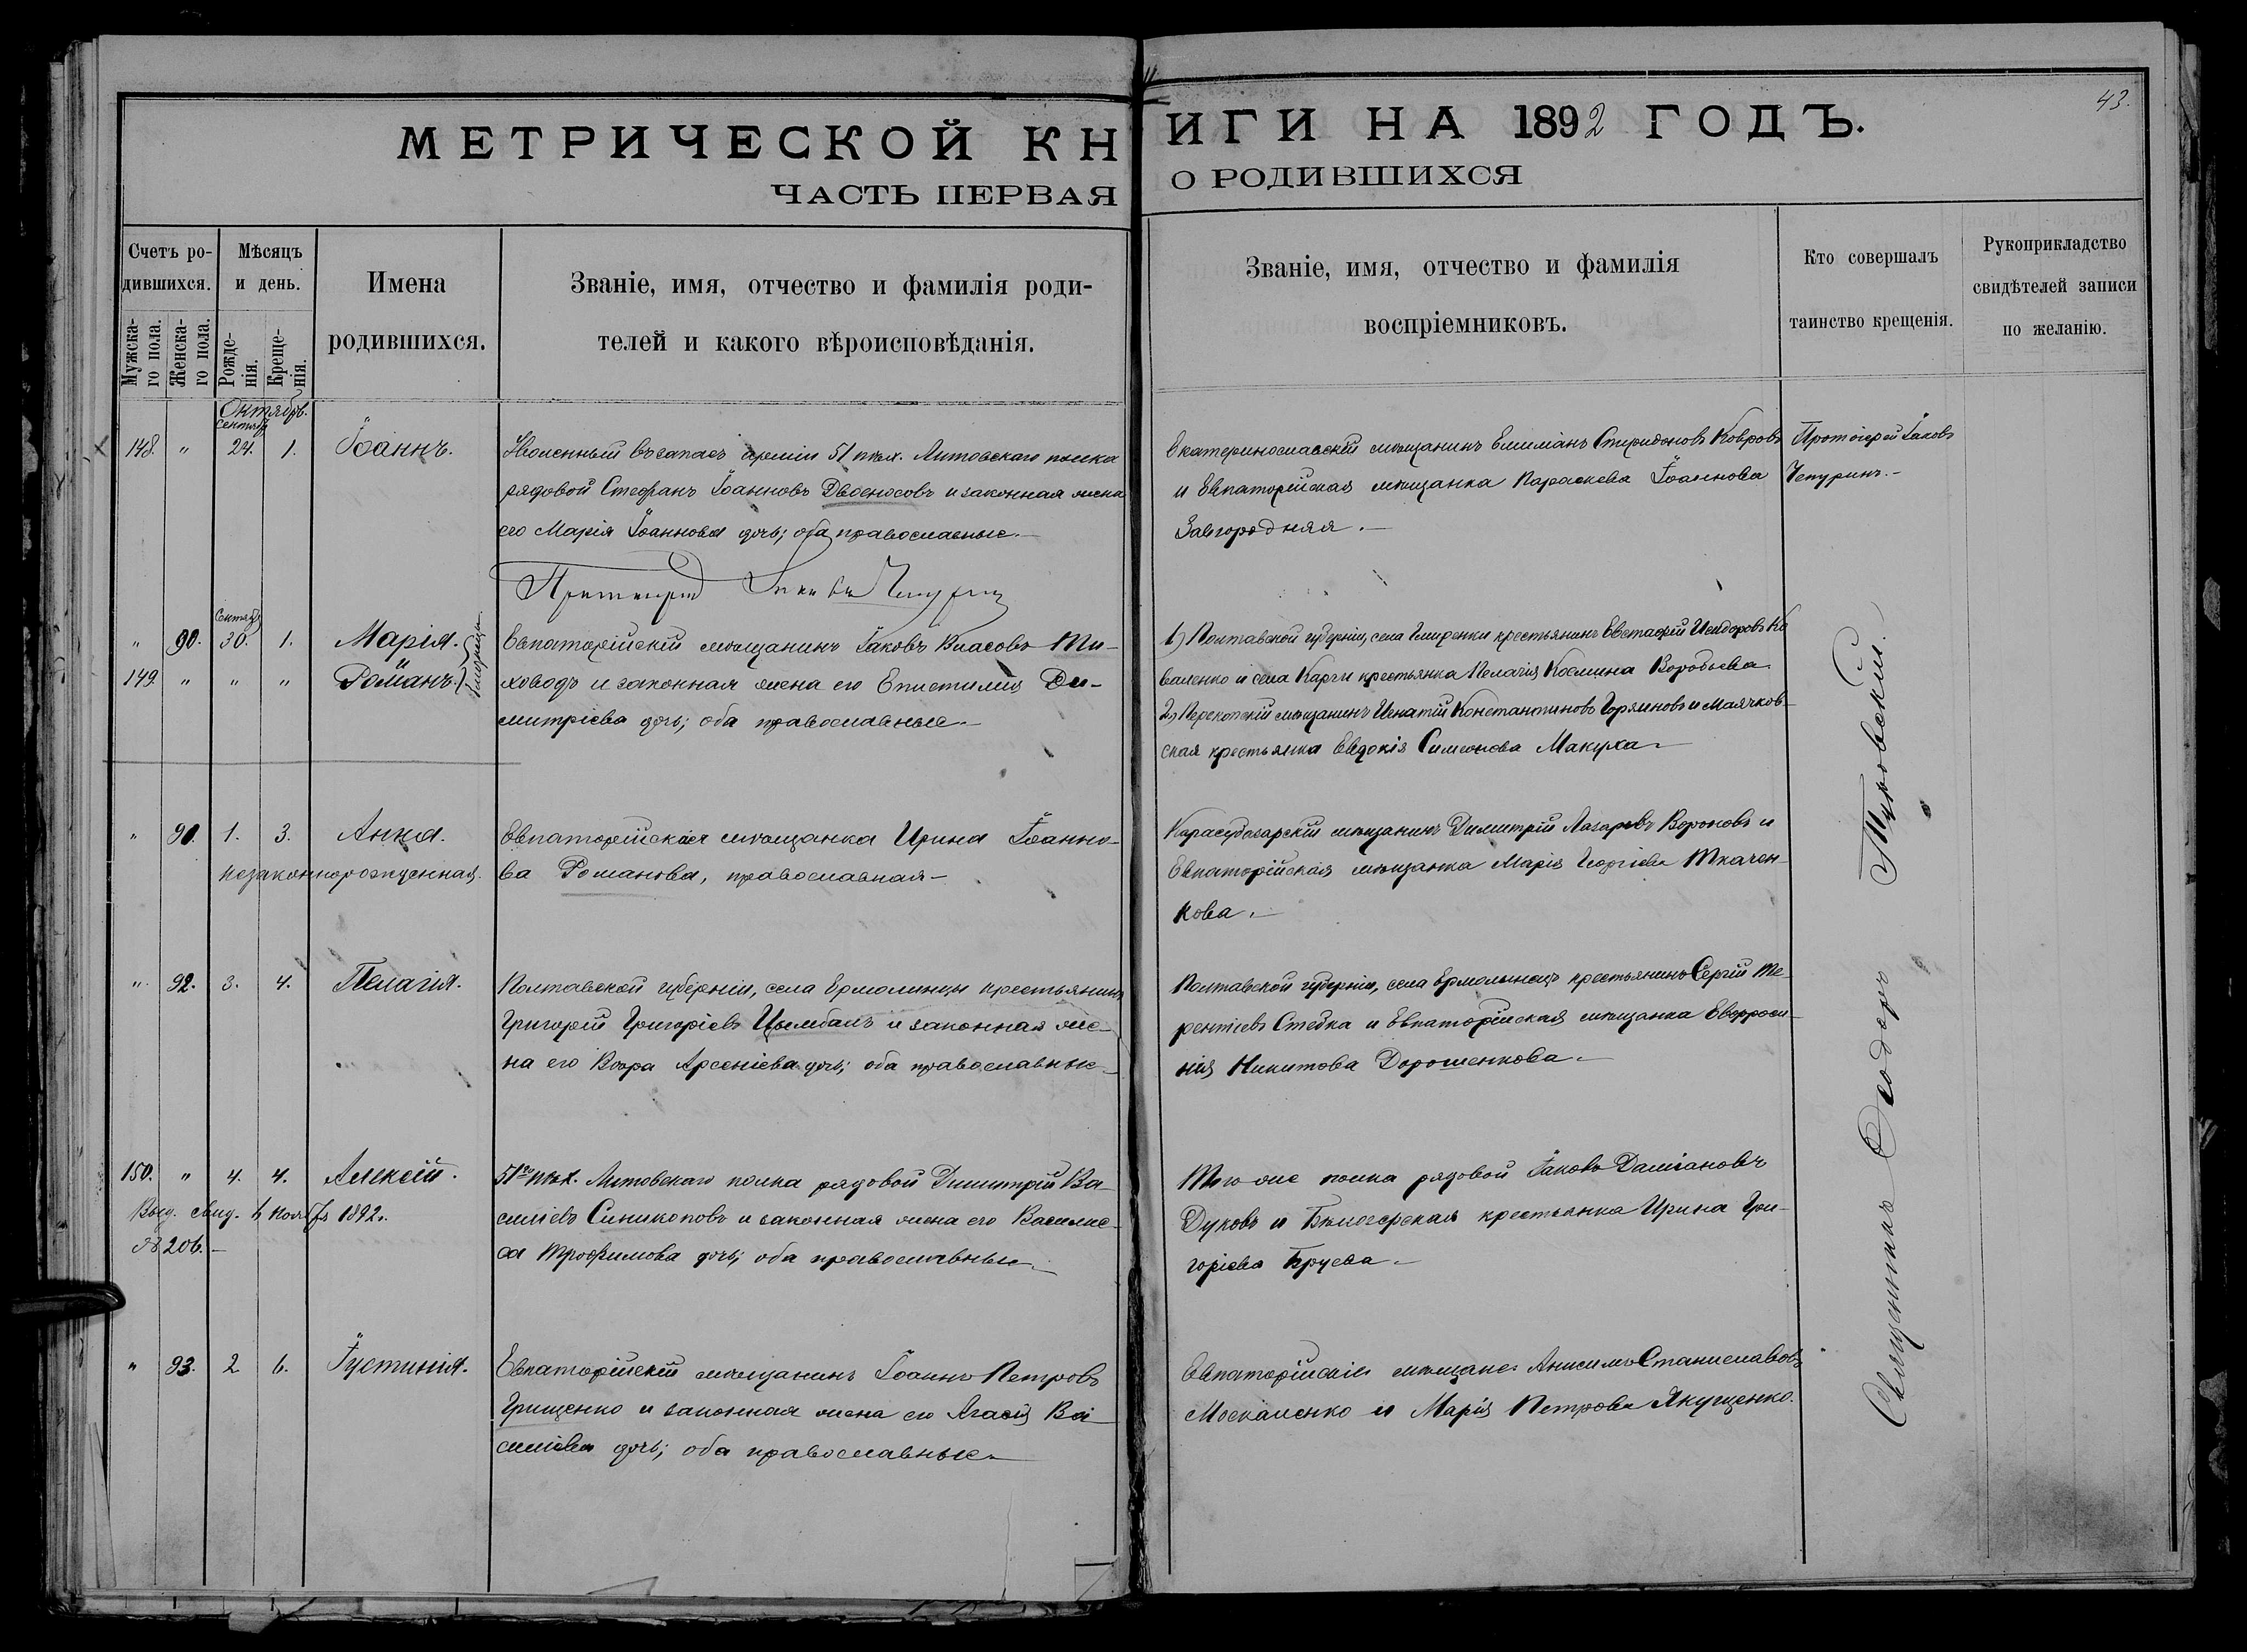 43.
МЕТРИЧЕСКОЙ КНИГИ НА 1892 ГОДЪ.
ЧАСТЬ ПЕРВАЯ О РОДИВШИХСЯ
Счетъ родившихся.
Мужскаго пола.
Женскаго пола.
Мѣсяцъ и день.
Рожденія.
Крещенія.
Имена
родившихся.
Званіе, имя, отчество и фамилія роди-
телей и какого вѣроисповѣданія.
Званіе, имя, отчество и фамилія
воспріемниковъ.
Кто совершалъ
таинство крещенія.
Рукоприкладство
свидѣтелей записи
по желанію.
Октябрь.
Сентябр
148. " 24. 1. Іоаннъ.
Уволенный въ запасъ арміи 51 пѣх. Литовскаго полка
рядовой Стефанъ Іоанновъ Двоеносовъ и законная жена
его Марія Іоаннова дочь; оба православные.
Екатеринославскій мѣщанинъ Емиліанъ Спиридоновъ Ковровъ
и Евпаторійская мѣщанка Параскева Іоаннова
Завгородняя.
Протоіерей Іаковъ
Чепуринъ.
Протоіерей Іаковъ Чепуринъ
Сентябр
" 90. 30. 1. Марія.
149. " " " Романъ.
близнецы
Евпаторійскій мѣщанинъ Іаковъ Власовъ Ти-
ховодъ и законная жена его Епистимія Ди-
митріева дочь; оба православные.
1) Полтавской губерніи, села Гмиренки крестьянинъ Евстафій Исидоровъ Ко
валенко и села Карги крестьянка Пелагія Космина Воробьева
2) Перекопскій мѣщанинъ Игнатій Константиновъ Горяиновъ и Маячков-
ская крестьянка Евдокія Симеонова Макуха.
" 91. 1. 3. Анна.
незаконнорожденная.
Евпаторійская мѣщанка Ирина Іоанно-
ва Романова, православная.
Карасубазарскій мѣщанинъ Димитрій Лазаревъ Вороновъ и
Евпаторійская мѣщанка Марія Георгіева Ткачен-
кова.
" 92. 3. 4. Пелагія.
Полтавской губерніи, села Ермолинцы крестьянинъ
Григорій Григоріевъ Цымбалъ и законная же-
на его Вѣра Арсеніева дочь; оба православные.
Полтавской губерніи, села Ермолинецъ крестьянинъ Сергій Те-
рентіевъ Стебка и Евпаторійская мѣщанка Евфроси-
нія Никитова Дорошенкова.
150. " 4. 4. Алексій.
Выд. свид. 4 нояб 1892 г.
№ 206.
51го пѣх. Литовскаго полка рядовой Димитрій Ва-
силіевъ Синикоповъ и законная жена его Василис-
са Трофимова дочь; оба православные.
Того же полка рядовой Іаковъ Даміановъ
Духовъ и Бѣлозерская крестьянка Ирина Гри-
горіева Бруева.
" 93. 2. 6. Іустинія.
Евпаторійскій мѣщанинъ Іоаннъ Петровъ
Грищенко и законная жена его Агаѳія Ва-
силіева дочь; оба православные.
Евпаторійскіе мѣщане: Анисимъ Станиславовъ
Москаленко и Марія Петрова Якущенко.
Священникъ Ѳеодоръ